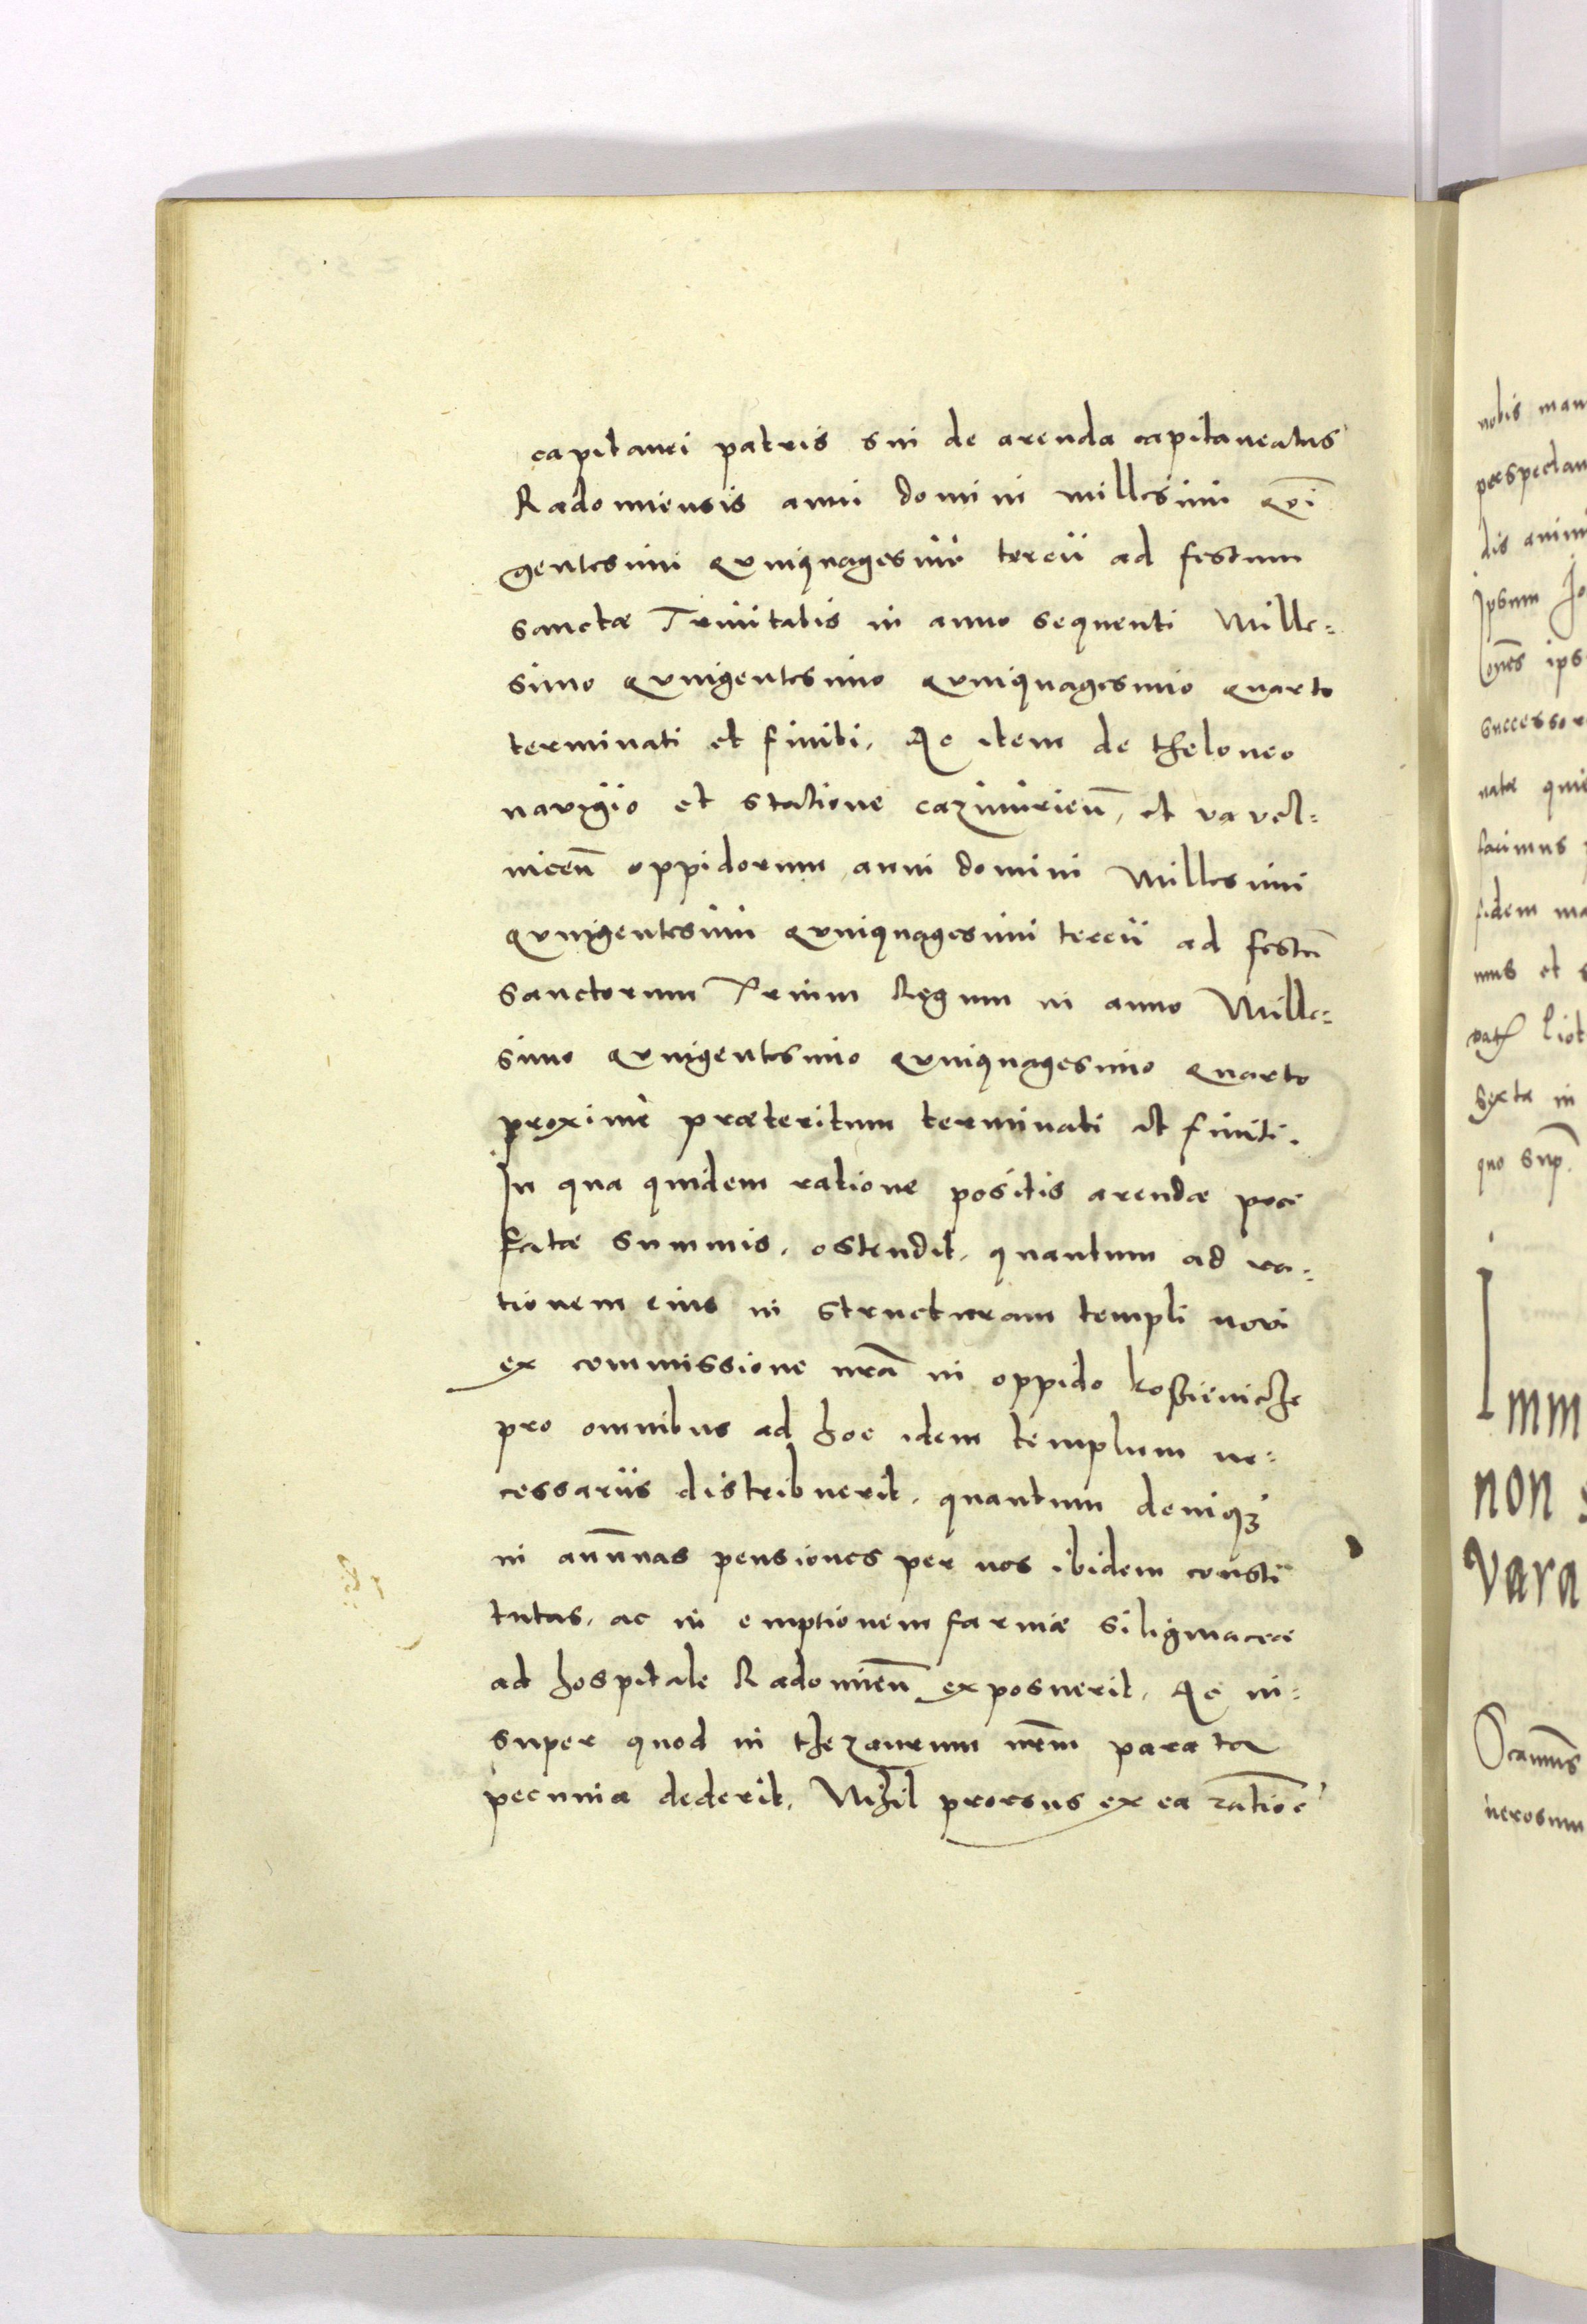 capitanei patris sui de arenda capitaneatus
Radomiensis anni domini millesimi qui͂
gentesimi quinquagesimi tercii ad festum
sanctæ Trinitatis in anno sequenti Mille=
simo quingentesimo quinquagesimo quarto
terminati et finiti, Ac item de theloneo
navigio et statione cazimirien̄, et vavel=
nicen̄ oppidorum anni domini Millesimi
quingentesimi quinquagesimi tercii ad festū
sanctorum Trium Regum in anno Mille=
simo quingentesimo quinquagesimo quarto
proximè præteritum terminati et finiti.
In qua quidem ratione positis arendæ præ
fatæ summis, ostendit, quantum ad ra=
tionem eius in structuram templi novi
ex commissione nr̄a in oppido koßienicze
pro omnibus ad hoc idem templum ne=
cessariis distribuerit, quantum deniqꝫ
in annuas pensiones per nos ibidem consti
tutas, ac in emptionem farinæ siligineaceæ
ad hospitale Radomien̄ exposuerit, Ac in=
super quod in thezaurum nr̄m parata
pecunia dederit, Nihil prorsus ex ea ratioē
nobis man
perspectam
dis animi
Ipsum Jo
ones ips
successor
natæ qui
facimus
fidem ma
mus et s
Sexta in
quo sup.
Imm
non s
vara
nerosum